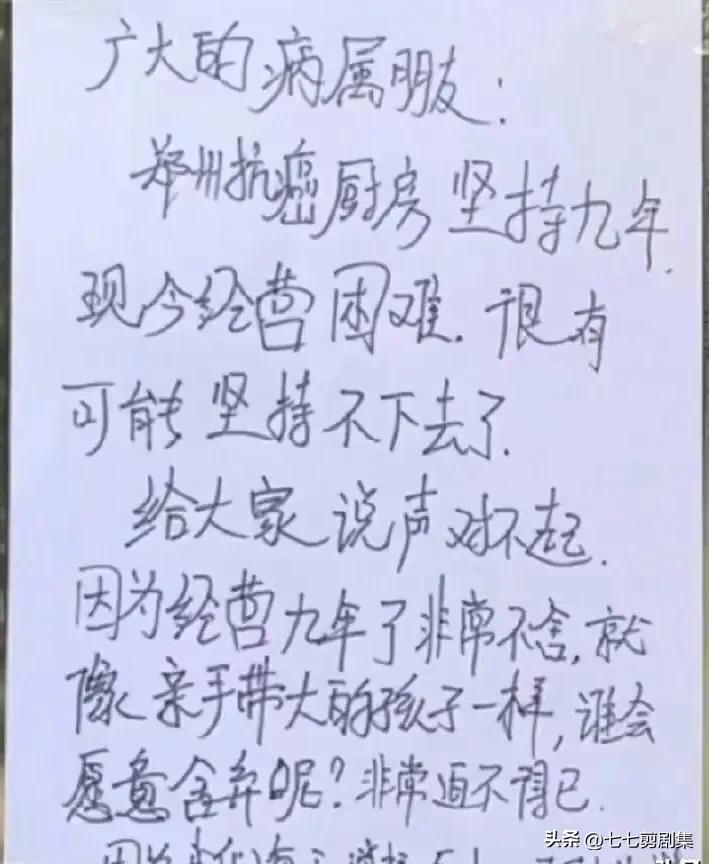 广大的病属朋友:
郑州抗癌厨房坚持九年.
现今经营困难.很有
可能坚持不下去了.
给大家说声对不起.
因为经营九年了非常不舍,就
像亲手带大的孩子一样,谁会
愿意舍弃呢?非常迫不得已.
因为
头条 @七七剪剧集